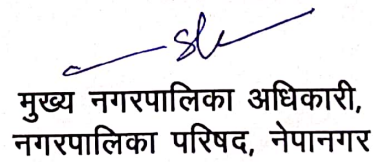 मुख्य नगरपालिका अधिकारी,
नगरपालिका परिषद, नेपानगर